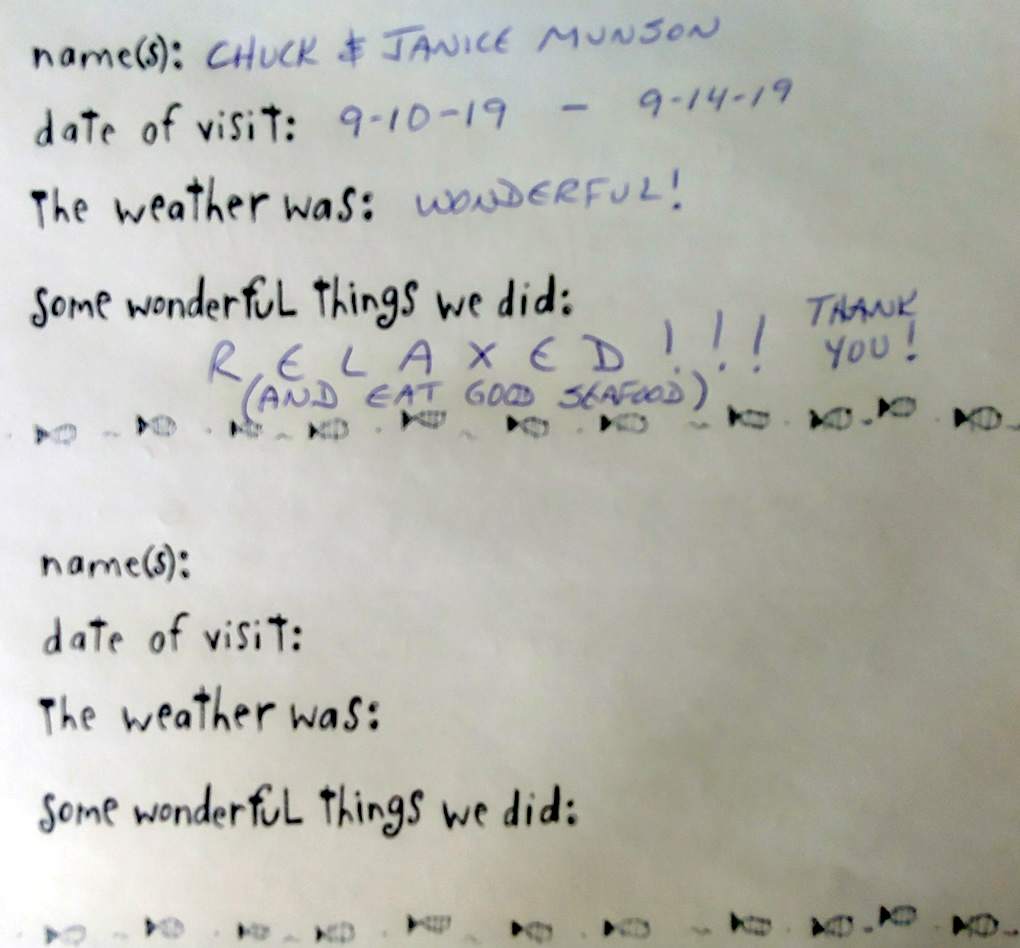 name(s): CHUCK & JANICE MUNSON
date of visit: 9-10-19 - 9-14-19
The weather was: WONDERFUL!
Some wonderful things we did:
THANK
YOU!
RELAXED!!!
(AND EAT GOOD SEAFOOD)
name(s):
date of visit:
The weather was:
Some wonderful things we did: